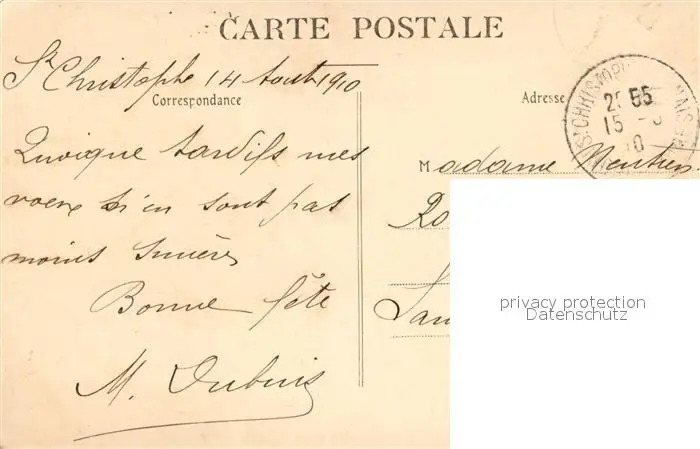 CARTE POSTALE
St Christophe 14 Aout 1910
Correspondance
Adresse
Quoique tardifs mes
voeux n'en sont pas
moins sincères
Bonne fête
M. Dubuis
Madame
Ro
San
ST CHRISTOPH
55
15
10
privacy protection
Datenschutz